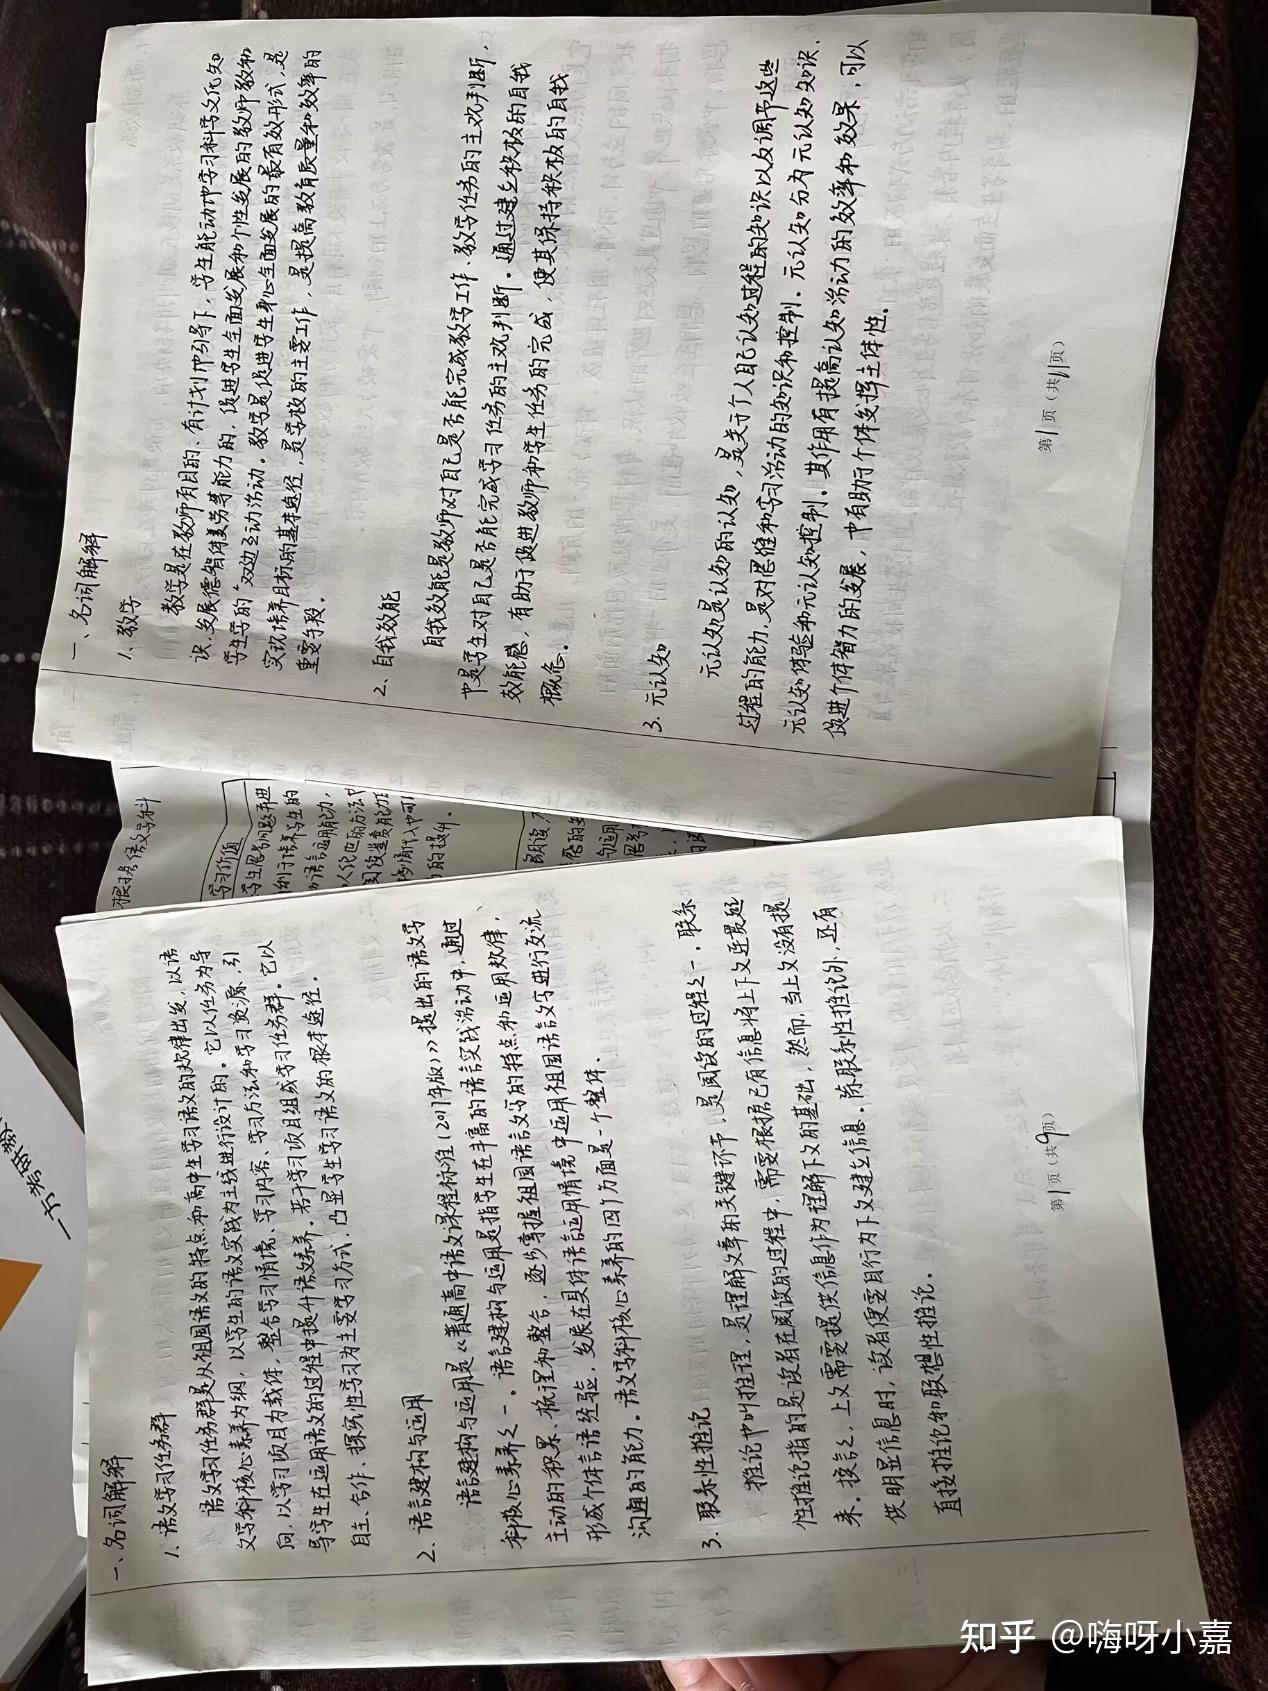 一、名词解释
1. 教学
教学是在教师有目的、有计划地引导下，学生能动地学习科学文化知
识、发展德智体美劳等能力的，促进学生全面发展和个性发展的教师教和
学生学的双边互动活动。教学是促进学生身心全面发展的最有效形式，是
实现培养目标的基本途径，是学校的主要工作，是提高教育质量和效率的
重要手段。
2. 自我效能
自我效能是教师对自己是否能完成教学工作、教学任务的主观判断，
也是学生对自己是否能完成学习任务的主观判断。通过建立积极的自我
效能感，有助于促进教师和学生任务的完成，使其保持积极的自我
概念。
3. 元认知
元认知是认知的认知，是关于个人自己认知过程的知识以及调节这些
过程的能力，是对思维和学习活动的知识和控制。元认知分为元认知知识、
元认知体验和元认知控制。其作用有提高认知活动的效率和效果，可以
促进个体智力的发展，也有助于个体发挥主体性。
第1页（共11页）
根据语文学科
学习价值
学生思考问题并进
利于培养学生的
语言运用能力，
的提升。
一、名词解释
1. 语文学习任务群
语文学习任务群是从祖国语文的特点和高中生学习语文的规律出发，以语
文学科核心素养为纲，以学生的语文实践为主线进行设计的。它以任务为导
向，以学习项目为载体，整合学习情境、学习内容、学习方法和学习资源，引
导学生在运用语文的过程中提升语文素养。若干学习项目组成学习任务群。它以
自主、合作、探究性学习为主要学习方式，凸显学生学习语文的根本途径。
2. 语言建构与运用
语言建构与运用是《普通高中语文课程标准（2017年版）》提出的语文学
科核心素养之一。语言建构与运用是指学生在丰富的语言实践活动中，通过
主动的积累、梳理和整合，逐步掌握祖国语言文字的特点和运用规律，
形成个体言语经验，发展在具体语言运用情境中运用祖国语言文字进行交流
沟通的能力。语文学科核心素养的四个方面是一个整体。
3. 联系性推论
推论也叫推理，是理解文章的关键环节，是阅读的过程之一。联系
性推论指的是读者在阅读的过程中，需要根据已有信息将上下文连贯起
来。换言之，上文需要提供信息作为理解下文的基础，然而，当上文没有提
供明显信息时，读者便要自行为下文建立信息。除联系性推论外，还有
直接推论和联想性推论。
第1页（共9页）
知乎 @嗨呀小嘉